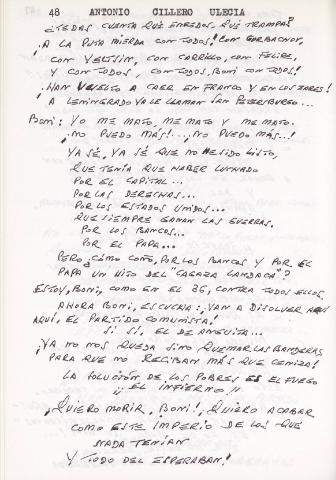 48 ANTONIO CILLERO ULECIA
¿TE DAS CUENTA QUÉ ENREDOS, QUÉ TRAMPA?
¡A LA PUTA MIERDA CON TODOS! CON GARBACHOV,
CON YELTSIN, CON CARRILLO, CON FELIPE,
Y CON TODOS, CON TODOS, BONI CON TODOS!
¡HAN VUELTO A CAER EN FRANCO Y EN LOS ZARES!
A LENINGRADO YA LE LLAMAN SAN PETERSBURGO...
BONI: YO ME MATO, ME MATO Y ME MATO.
¡NO PUEDO MÁS!...¡NO PUEDO MÁS...!
YA SÉ, YA SÉ QUE NO HE SIDO LISTO,
QUE TENÍA QUE HABER LUCHADO
POR EL CAPITAL...
POR LAS DERECHAS...
POR LOS ESTADOS UNIDOS...
QUE SIEMPRE GANAN LAS GUERRAS.
POR LOS BANCOS...
POR EL PAPA...
PERO ¿CÓMO COÑO, POR LOS BANCOS Y POR EL
PAPA UN HIJO DEL "CAGAZA LANDACA"?
ESTOY, BONI, COMO EN EL 36, CONTRA TODOS ELLOS.
AHORA BONI, ESCUCHA: ¡VAN A DISOLVER AQUÍ
AQUÍ, EL PARTIDO COMUNISTA!
SÍ SÍ, EL DE ANGUITA...
¡YA NO NOS QUEDA SINO QUEMAR LAS BANDERAS
PARA QUE NO RECIBAN MÁS QUE CENIZA!
LA SOLUCIÓN DE LOS POBRES ES EL FUEGO
¡¡EL INFIERNO!!
¡QUIERO MORIR, BONI!, QUIERO ACABAR
COMO ESTE IMPERIO DE LOS QUE
NADA TENÍAN
Y TODO DEL ESPERABAN!